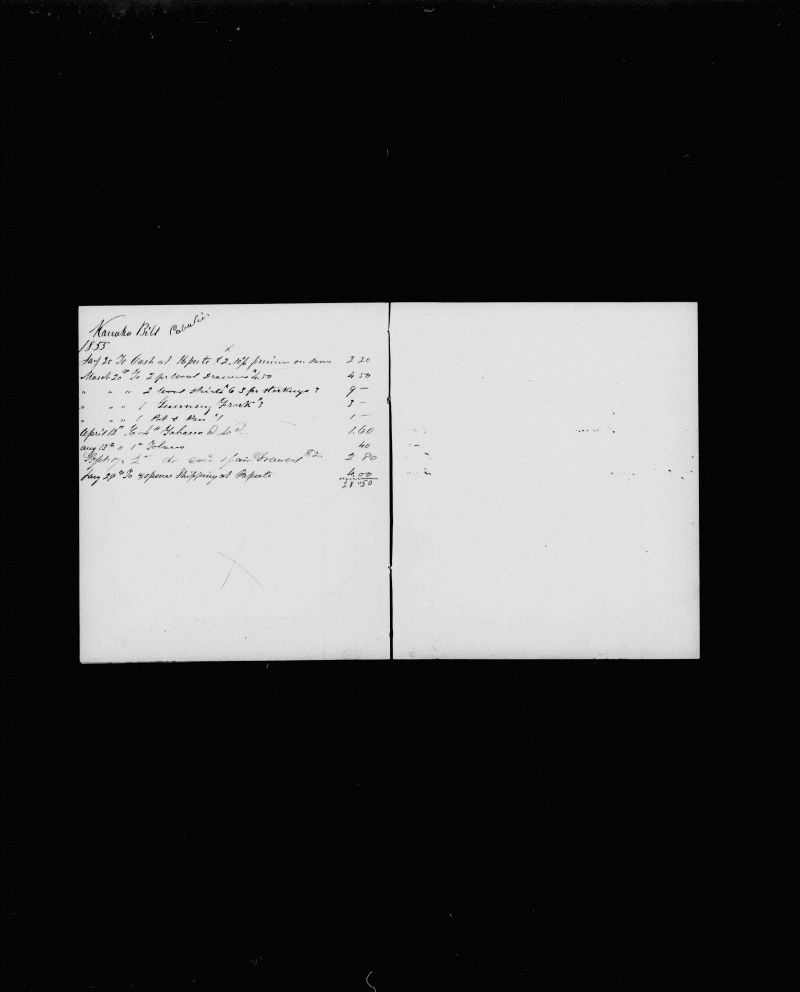 Kanaka Bill
1855
Jany 20 To Cash at Papeete $2. 10% premium on same 2 20
March 20th To 2 pr wool Drawers $4.50 4 50
" " " 2 wool shirts $6 3 pr stockings 3 9 —
" " " 1 Guernsey Frock $3 3 —
" " " 1 Pot & Pan $1 1 —
April 12th To 4 lb Tobacco 1.60
Aug 13th " 1 lb Tobacco 40
Sept 2 lb do 1 pair Drawers $2 2 80
Jany 29th To expense Shipping at Papeete 4.00
28 50